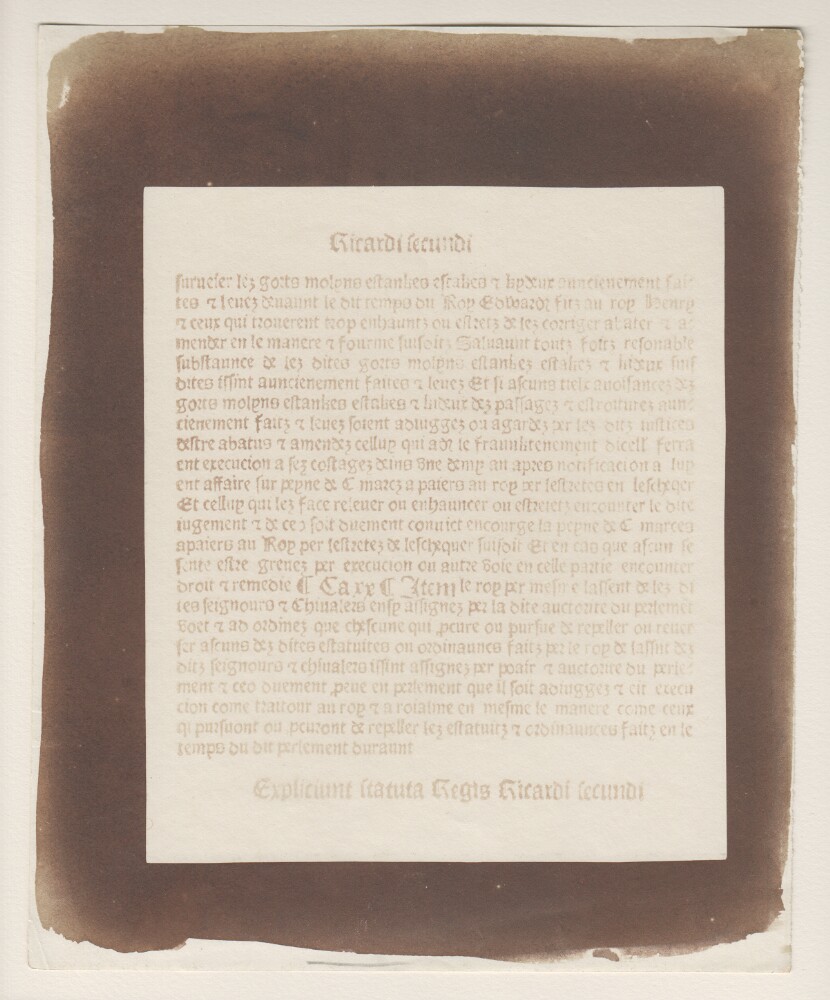 Ricardi secundi
surueier lez gorts molyns estankes estakes ⁊ kydeux auncienement fai
tes ⁊ leuez deuaunt le dit temps du Roy Edwardz fitz au roy Henry
⁊ ceux qui trouerent trop enhauntz ou estretz de lez corriger abater ⁊ a
mender en le manere ⁊ fourme suisditz Salvaunt toutz foitz resonable
substaunce de lez dites gorts molyns estankez estakez ⁊ kideux suis
dites issint auncienement faites ⁊ leuez Et si ascuns tielx anoisancez dez
gorts molyns estankes estakes ⁊ kideux dez passagez ⁊ estroiturez aun
cienement faitz ⁊ leuez soient adiuggez ou agardez per lez ditz iustices
destre abatus ⁊ amendez celluy qui adz le frauncktenement dicell ferra
ent execucion a sez costagez deins vne demy an apres notificacion a luy
ent affaire sur peyne de C marcz a paiers au roy per lestretes en leschqer
Et celluy qui lez face releuer ou enhauncer ou estreietz encounter le dite
iugement ⁊ de ceo soit duement conuict encourge la peyne de C marces
apaiers au Roy per lestretez de leschequer suisdit Et en cas que ascun se
sente estre greuez per execucion ou autre voie en celle partie encounter
droit ⁊ remedie ¶ Ca xx ¶ Item le roy per mesme lassent de lez di
tes seignours ⁊ Chiualers ensy assignez per la dite auctorite du perlement
voet ⁊ ad ordinez que chescune qui pcure ou pursue de repeller ou reuer
ser ascuns dez dites estatuites ou ordinaunces faitz per le roy de lassint dez
ditz seignours ⁊ chiualers issint assignez per poair ⁊ auctorite du perle
ment ⁊ ceo duement proue en perlement que il soit adiuggez ⁊ eit execu
cion come traitour au roy ⁊ a roialme en mesme le manere come ceux
qi pursuont ou pcuront de repeller lez estatuitz ⁊ ordinaunces faitz en le
temps du dit perlement duraunt
Expliciunt statuta Regis Ricardi secundi